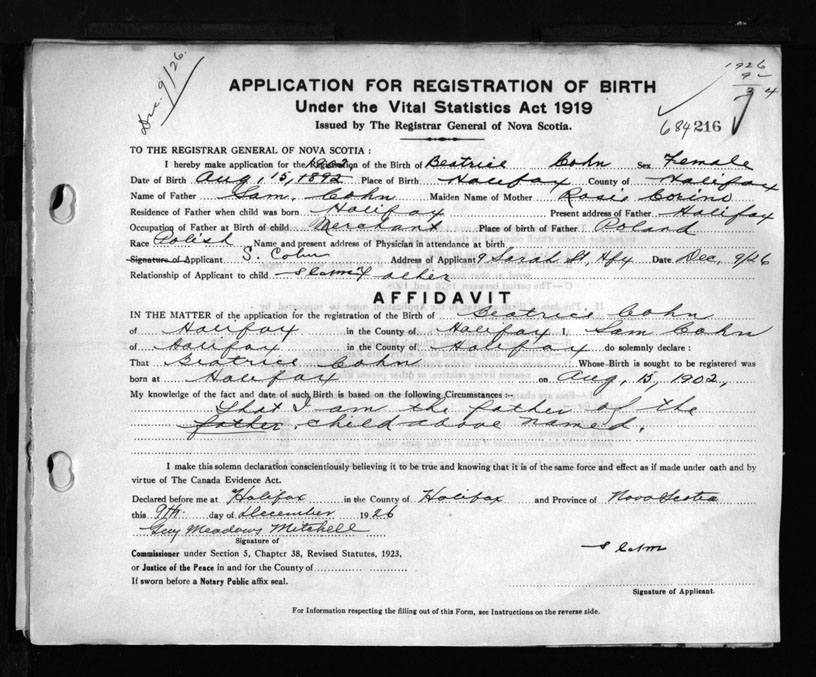 Dec. 9/26.
1926
9
3 4
684 216
APPLICATION FOR REGISTRATION OF BIRTH
Under the Vital Statistics Act 1919
Issued by The Registrar General of Nova Scotia.
TO THE REGISTRAR GENERAL OF NOVA SCOTIA :
I hereby make application for the Registration of the Birth of Beatrice Cohn Sex Female
Date of Birth Aug, 15, 1892 1902 Place of Birth Halifax County of Halifax
Name of Father Sam. Cohn Maiden Name of Mother Rosie Corino
Residence of Father when child was born Halifax Present address of Father Halifax
Occupation of Father at Birth of child Merchant Place of birth of Father Poland
Race Polish Name and present address of Physician in attendance at birth
Signature of Applicant S. Cohn Address of Applicant 9 Sarah St, Hfx Date Dec, 9/26
Relationship of Applicant to child Father
AFFIDAVIT
IN THE MATTER of the application for the registration of the Birth of Beatrice Cohn
of Halifax in the County of Halifax I, Sam Cohn
of Halifax in the County of Halifax do solemnly declare :
That Beatrice Cohn Whose Birth is sought to be registered was
born at Halifax on Aug, 15, 1902,
My knowledge of the fact and date of such Birth is based on the following Circumstances :-
That I am the father of the
father child above named.
I make this solemn declaration conscientiously believing it to be true and knowing that it is of the same force and effect as if made under oath and by
virtue of The Canada Evidence Act.
Declared before me at Halifax in the County of Halifax and Province of Nova Scotia
this 9th day of December 1926
Guy Meadows Mitchell
Signature of
Commissioner under Section 5, Chapter 38, Revised Statutes, 1923.
or Justice of the Peace in and for the County of
If sworn before a Notary Public affix seal.
S Cohn
Signature of Applicant.
For Information respecting the filling out of this Form, see Instructions on the reverse side.